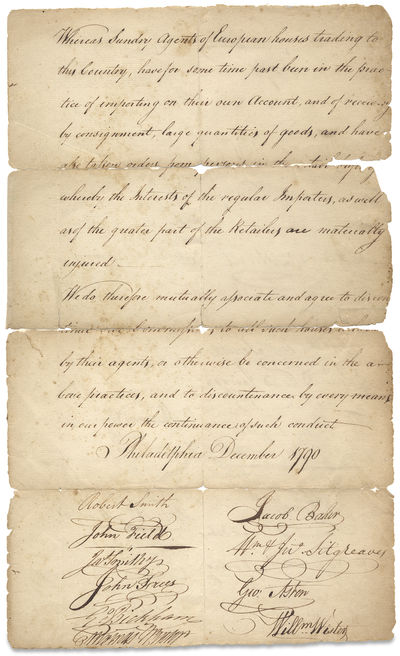 Whereas Sundry Agents of European houses trading to
this Country, have for some time past been in the prac-
tice of importing on their own Account, and of receiving
by consignment, large quantities of goods, and have
also taken orders from persons in the
whereby the Interests of the regular Importers, as well
as of the greater part of the Retailers are materially
injured
We do therefore mutually associate and agree to discon
to all such houses
by their agents, or otherwise be concerned in the a-
bove practices, and to discountenance by every means
in our power the continuance of such conduct
Philadelphia December 1790
Robert Smith
John Field
John
Bickham
Thomas
Jacob Baker
Wm & Jno Sitgreaves
Geo Aston
Willm Wister